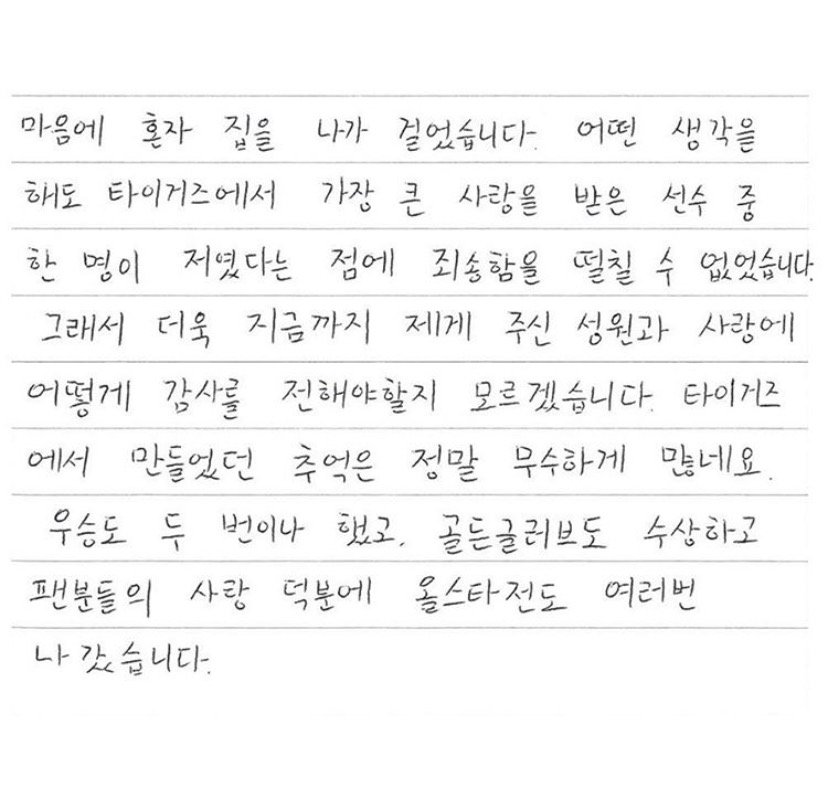 마음에 혼자 집을 나가 걸었습니다. 어떤 생각을
해도 타이거즈에서 가장 큰 사랑을 받은 선수 중
한 명이 저였다는 점에 죄송함을 떨칠 수 없었습니다.
그래서 더욱 지금까지 제게 주신 성원과 사랑에
어떻게 감사를 전해야할지 모르겠습니다. 타이거즈
에서 만들었던 추억은 정말 무수하게 많네요.
우승도 두 번이나 했고, 골든글러브도 수상하고
팬분들의 사랑 덕분에 올스타전도 여러번
나갔습니다.